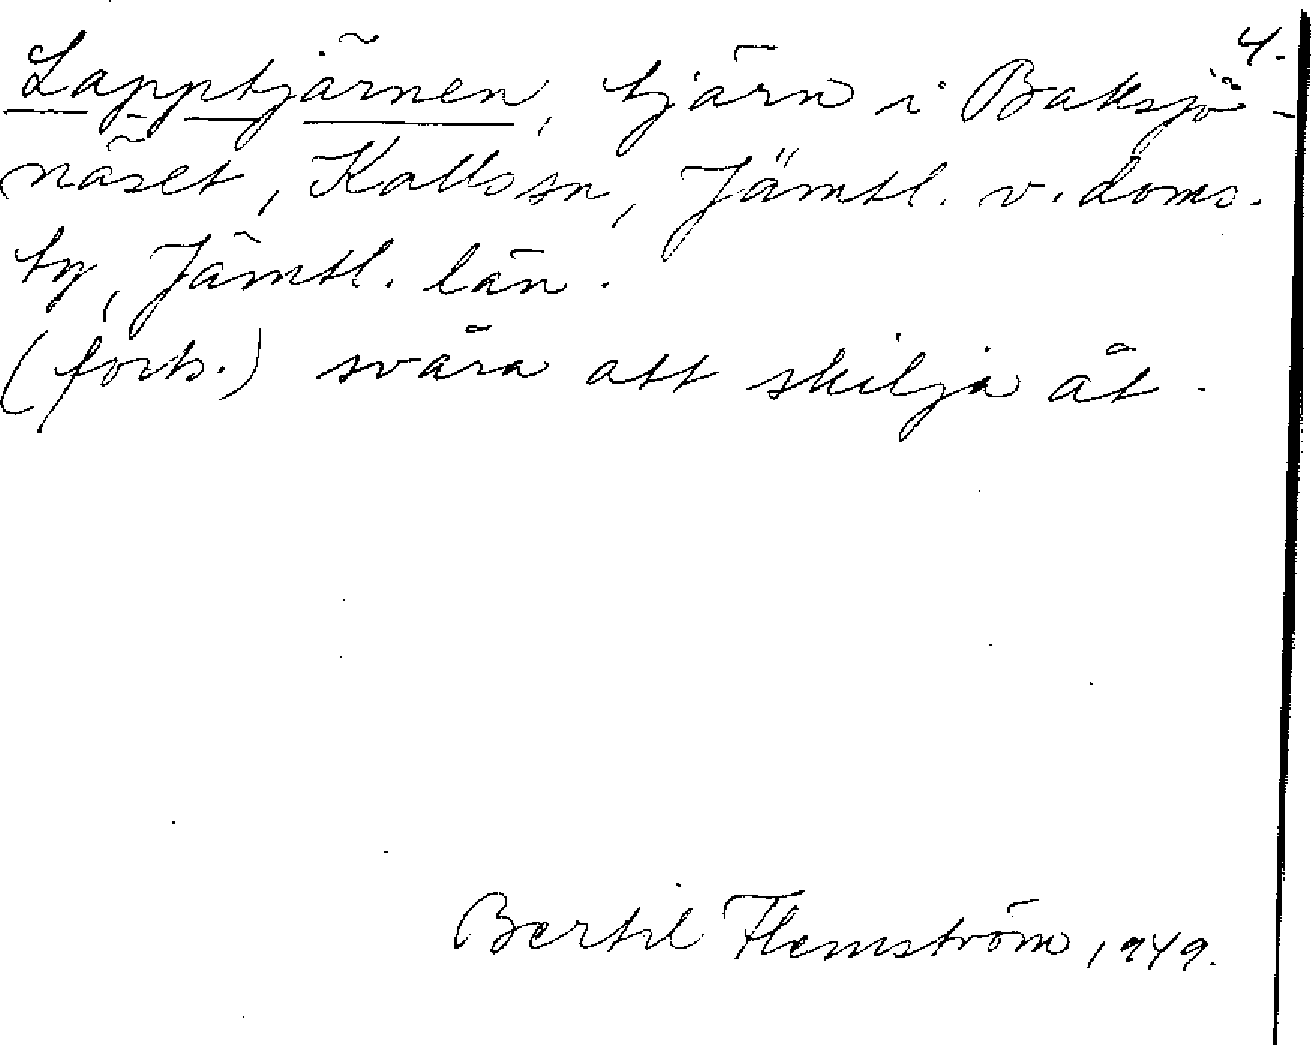 4.
Lapptjärnen, tjärn i Baksjö-
näset, Kalls sn, Jämtl. v. doms.
by, Jämtl. län.
(forts.) svåra att skilja åt.
Bertil Flemström, 1949.